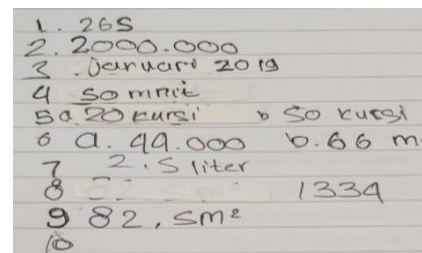 1. 265
2. 2000.000
3. Januari 2019
4 50 mnit
5 a 20 kursi b 50 kursi
6 a. 49.000 b. 66 m
7 2.5 liter
8 1334
9 82,5m²
10